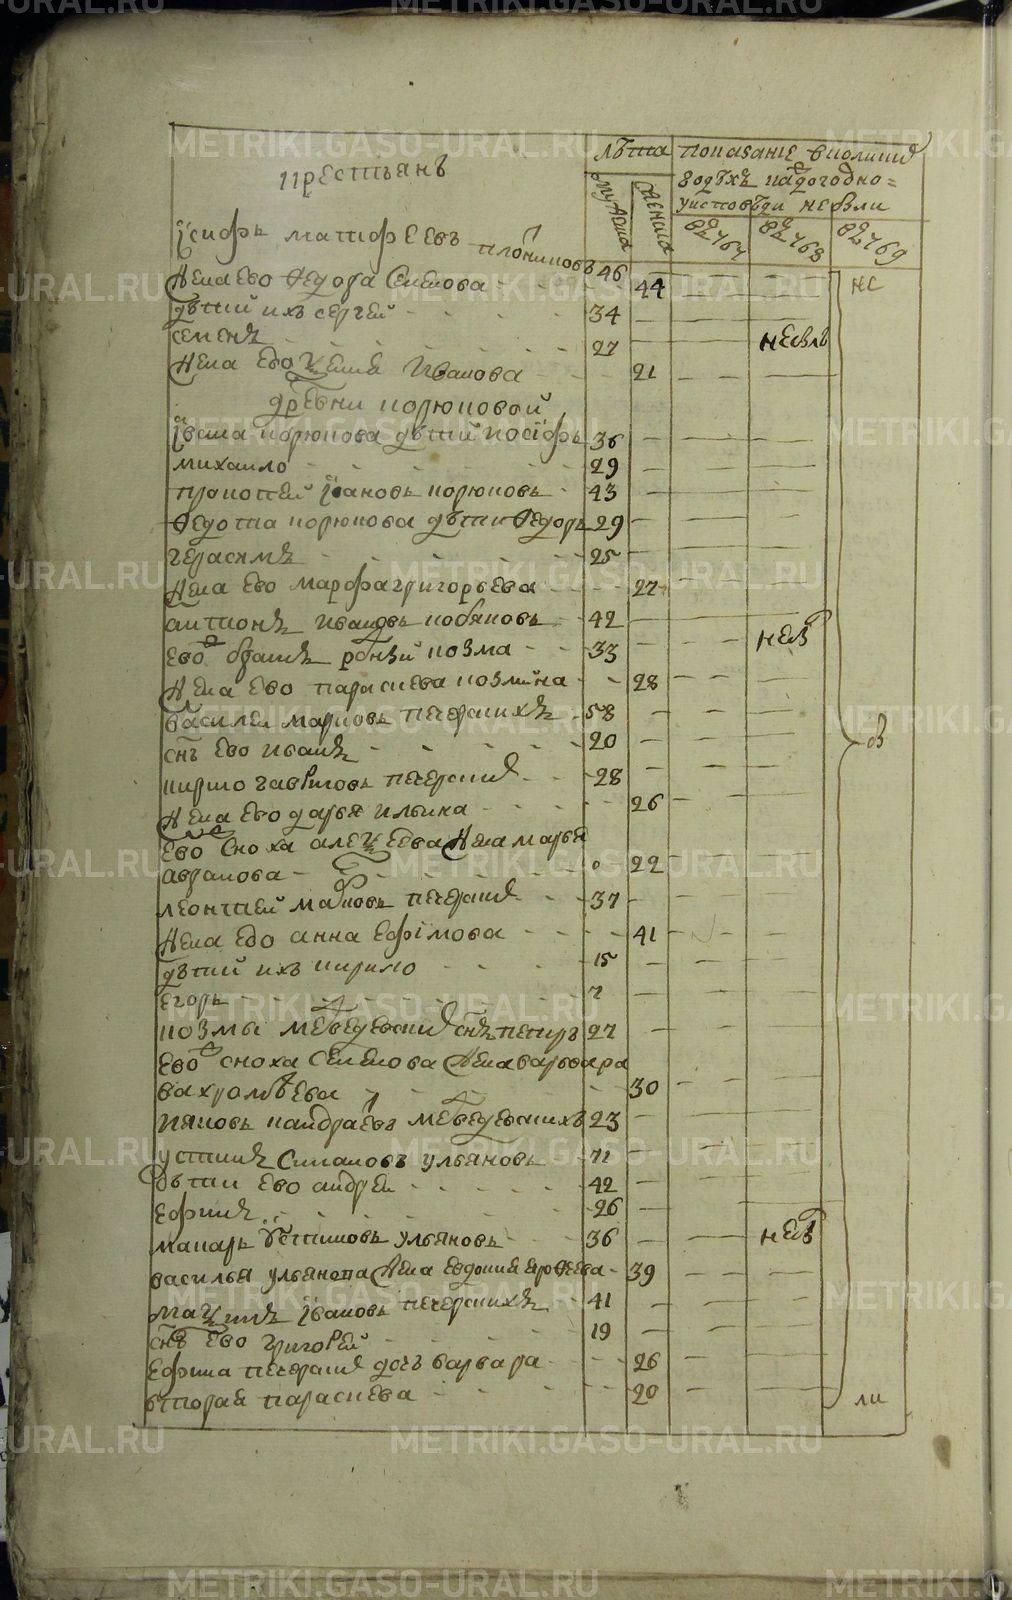 METRIKI.GASO-URAL.RU
крестьянъ
лѣта
показание в которих
годѣхъ кто погодно
у исповѣди не были
мужеска
женска
в 767
в 768
в 769
Їсифъ матфѣевъ плотниковъ 46
жена ево Ѳедора Семенова 44 не
дѣти ихъ сергеи 34
семенъ 27 небылъ
жена ево Ивановa 21
древни корюковой
Їванa корюкова дѣти иосїфъ 36
михаило 29
прокопеи ївановъ корюковъ 43
Ѳедота корюкова дѣти Ѳедоръ 29
герасимъ 25
жена ево марфа григорьева 27
антонъ ивановъ кобяковъ 42
ево братъ козма 33 небы
жена ево параскева козмина 28
василеи марковъ печерскихъ 58
снъ ево иванъ 20 бы
кирило гавриловъ печерских 28
жена ево дарья ильина 26
ево сноха алеѯеева жена марья
аврамова 22
леонтеи марковъ печерских 37
жена ево анна ефїмова 41
дѣти ихъ кирило 15
егоръ 7
козмы медведевских снъ петръ 27
ево сноха семенова жена варвара
вахромѣева 30
яковъ кондратевъ медведевскихъ 23
устинъ Симановъ ульяновъ 71
дѣти ево андреи 42
ефимъ 26
макаръ Устиновъ ульяновъ 36 небы
василья ульянова жена евдокия ерофеева 39
маѯимъ ївановъ печерскихъ 41
снъ ево григореи 19
ефима печерских дочь варвара 26
вторая параскева 20 ли